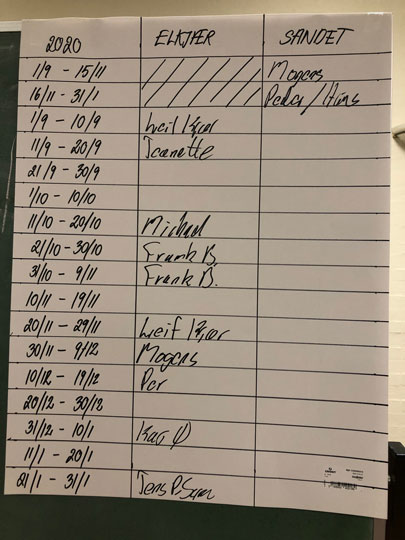 2020 ELKJÆR SANDET
1/9 - 15/11 Mogens
16/11 - 31/1 Peder /
1/9 - 10/9 Leif
11/9 - 20/9 Jeanette
21/9 - 30/9
1/10 - 10/10
11/10 - 20/10 Michael
21/10 - 30/10 Frank B.
31/10 - 9/11 Frank B.
10/11 - 19/11
20/11 - 29/11 Leif
30/11 - 9/12 Mogens
10/12 - 19/12 Per
20/12 - 30/12
31/12 - 10/1
11/1 - 20/1
21/1 - 31/1 Jens P.